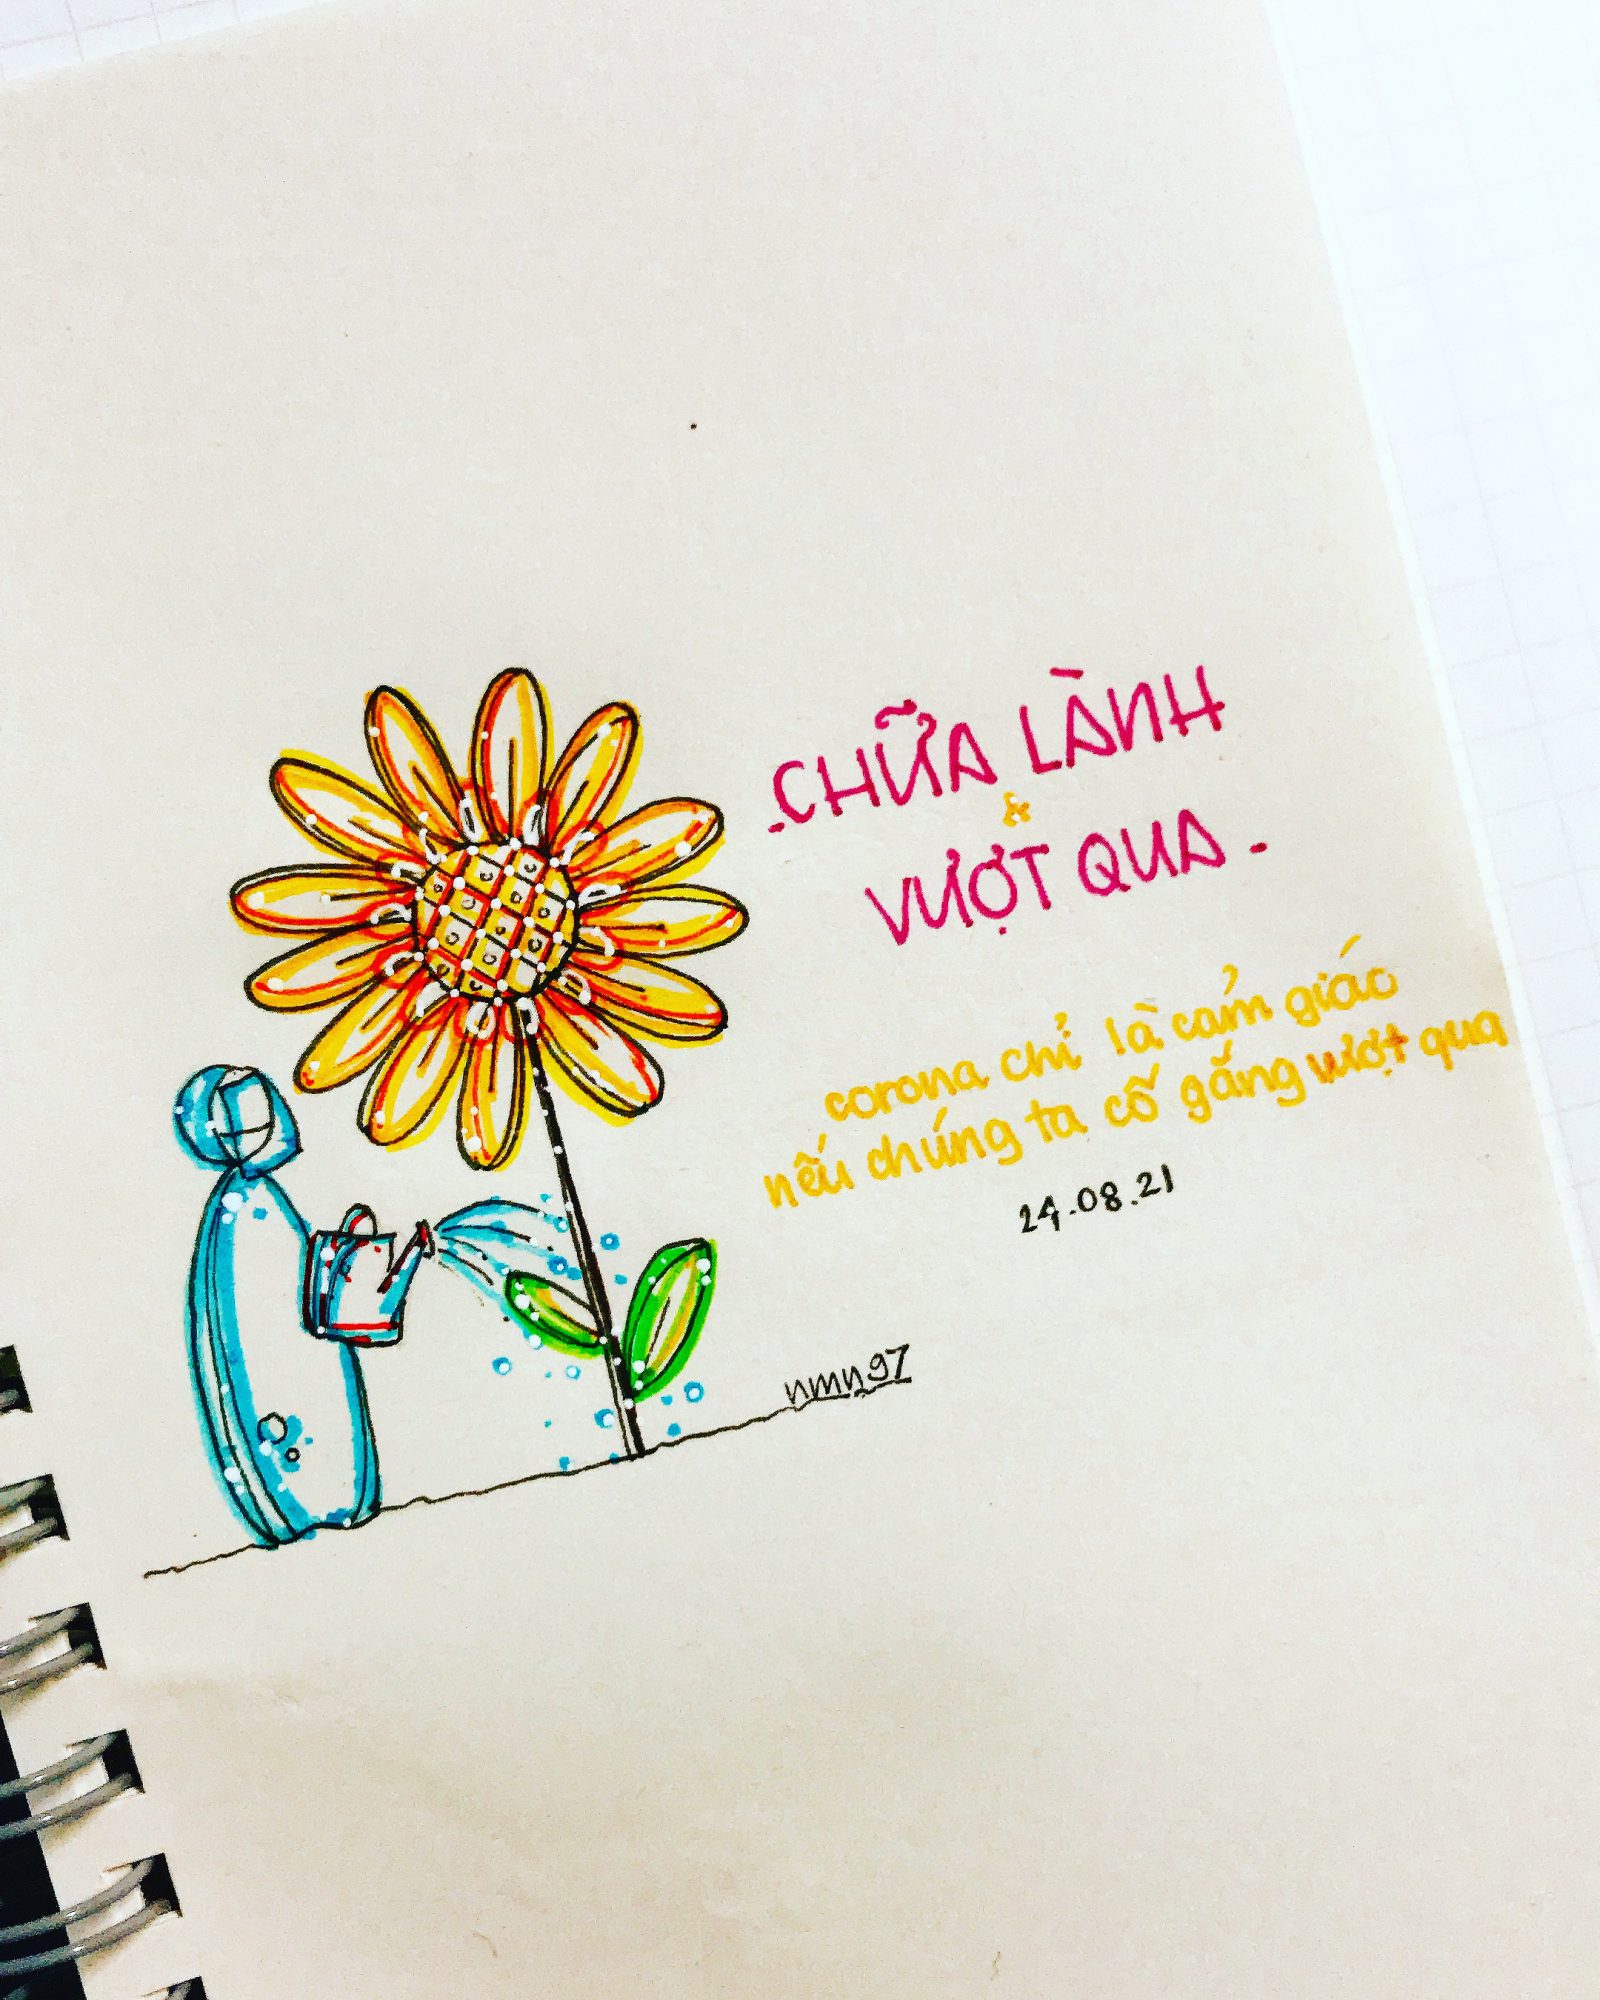 -CHỮA LÀNH
&
VƯỢT QUA-
corona chỉ là cảm giác
nếu chúng ta cố gắng vượt qua
24.08.21
nmn97